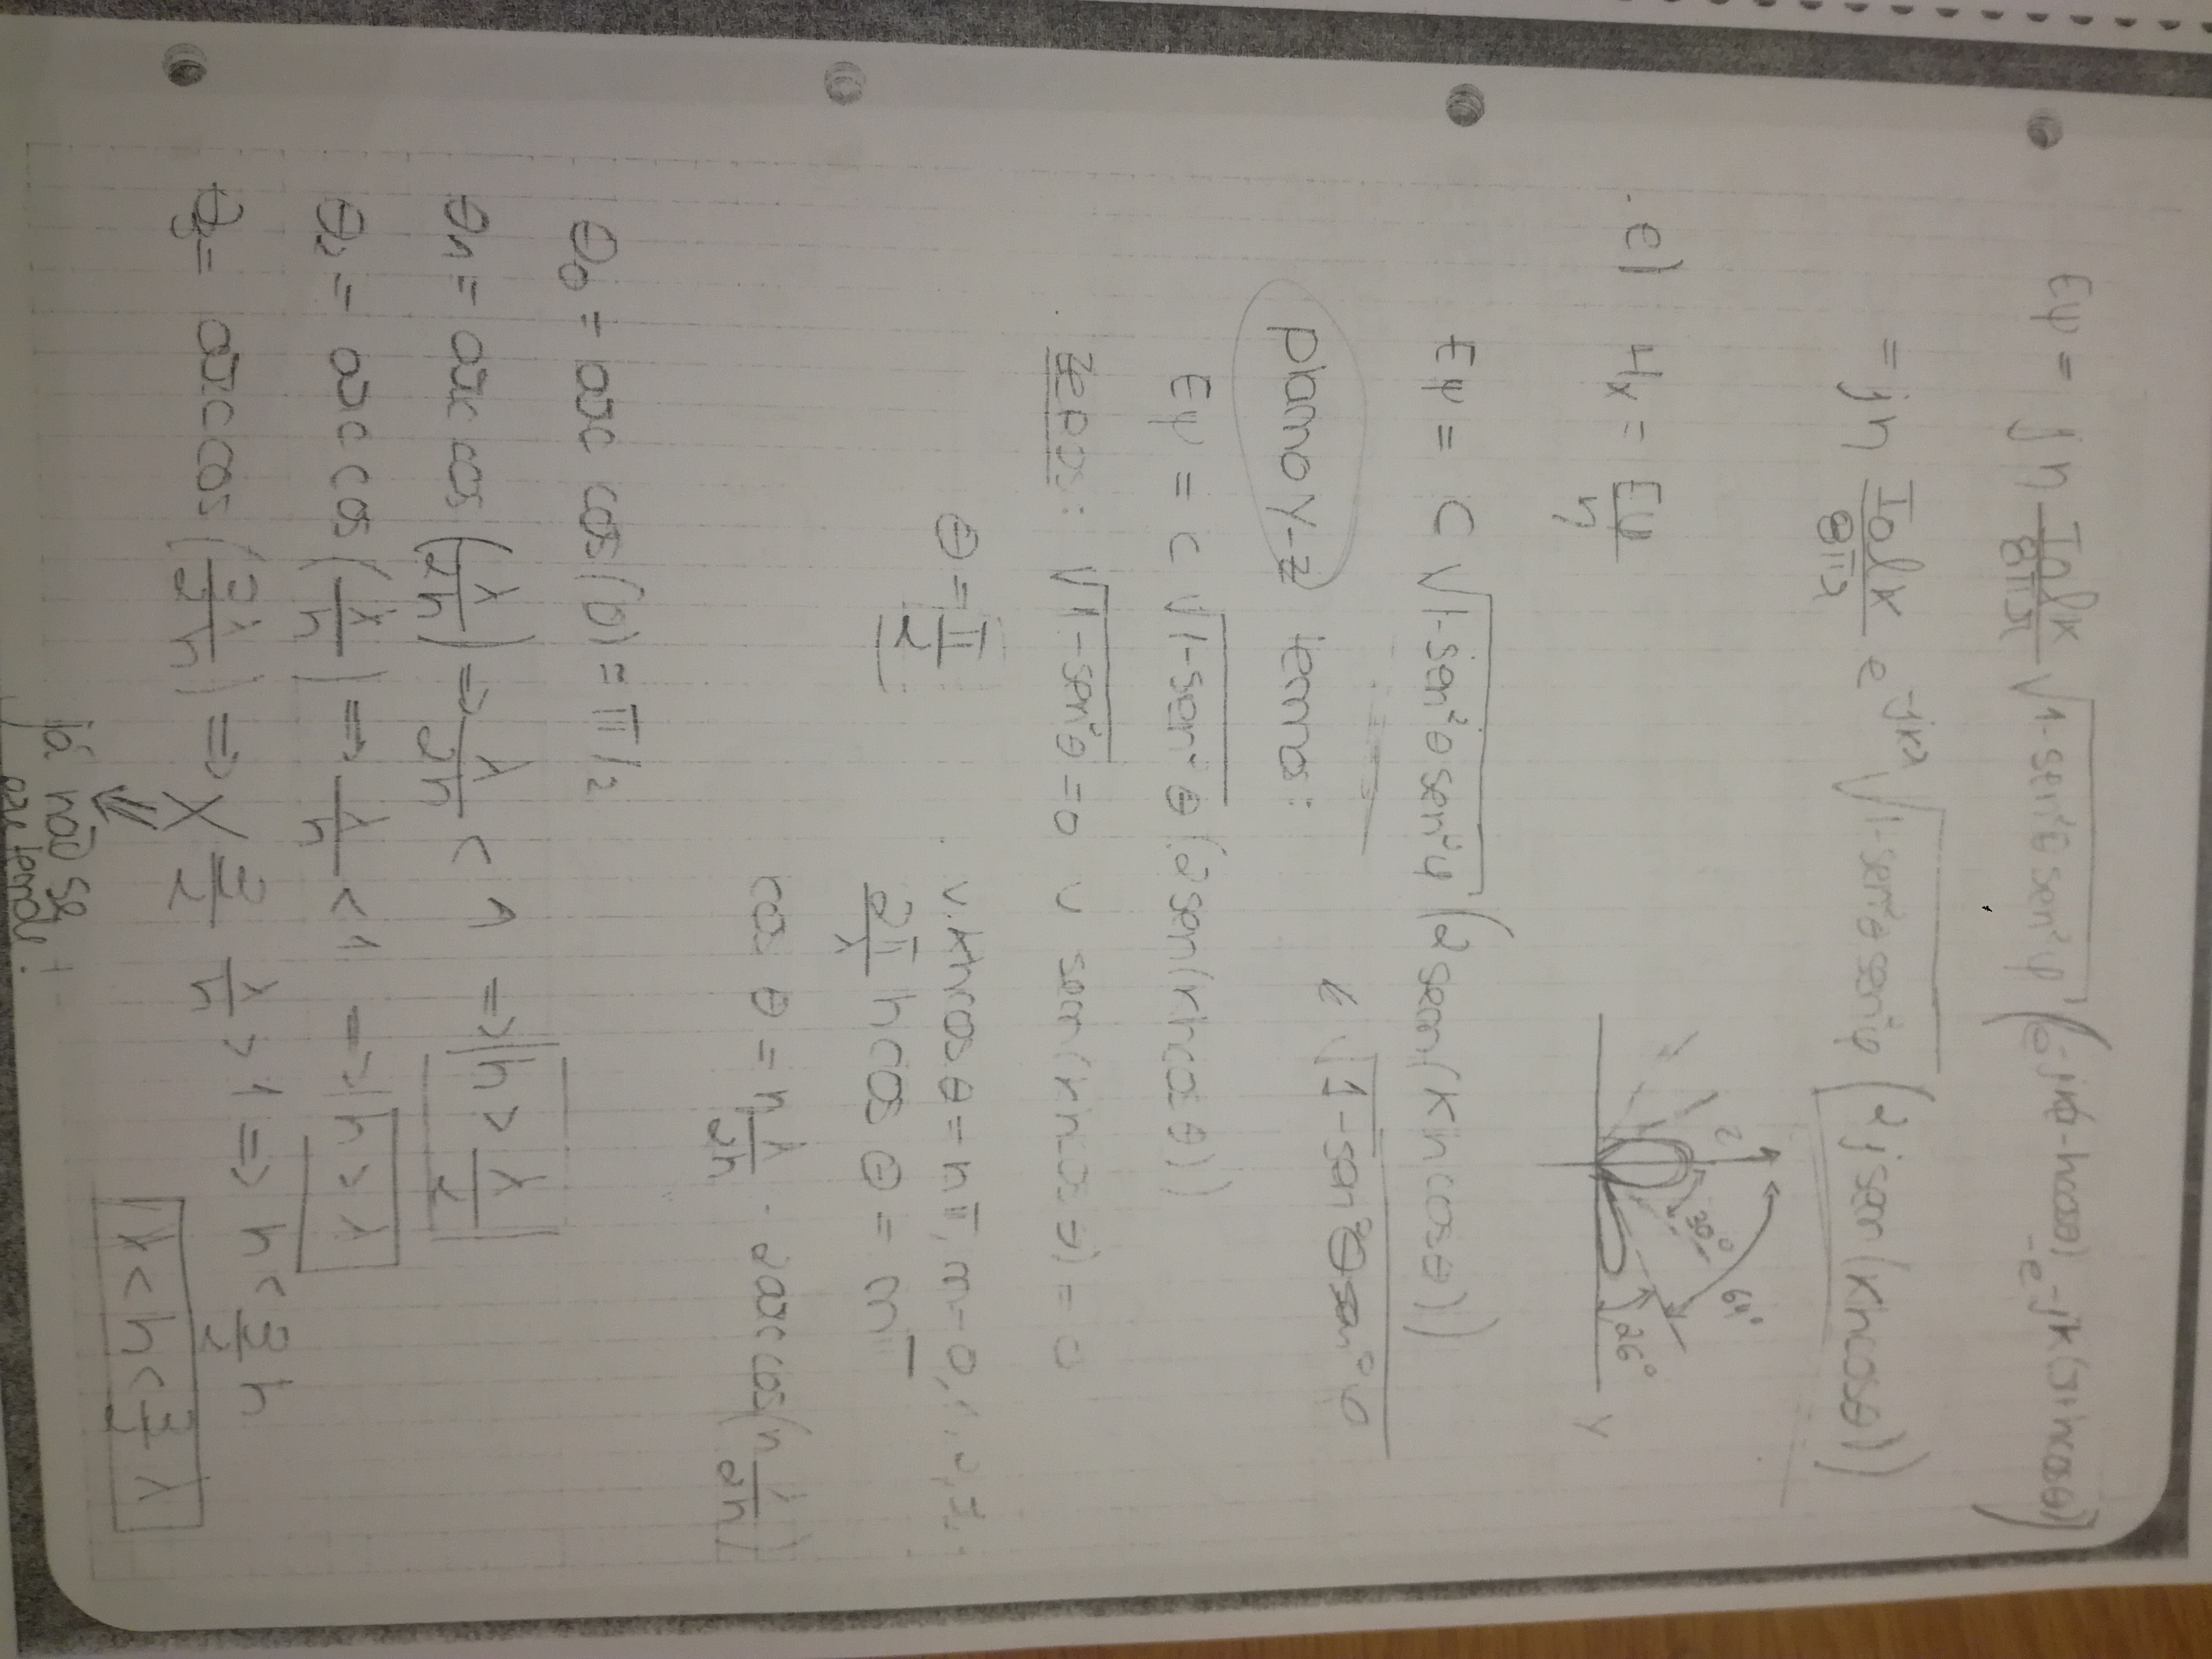 Eψ = jη I₀lk/8πr √1-sen²θsen²φ (e^-jk(r-hcosθ) - e^-jk(r+hcosθ))
= jη I₀lk/8πr e^-jkr √1-sen²θsen²φ (2jsen(khcosθ))
64°
30°
26°
Z
Y
e) Hx = Eψ/η
Eψ = C √1-sen²θsen²φ (2sen(khcosθ))
√1-sen²θsen²φ
plano Y-Z temos:
Eψ = C √1-sen²θ (2sen(khcosθ))
zeros: √1-sen²θ = 0 ∪ sen(khcosθ) = 0
θ = π/2
∪ khcosθ = nπ, n=0,1,2,3...
2π/λ hcosθ = nπ
cosθ = nλ/2h arccos(n λ/2h)
θ₀ = arccos(0) = π/2
θ₁ = arccos(λ/2h) => λ/2h < 1 => h > λ/2
θ₂ = arccos(λ/h) => λ/h < 1 => h > λ
θ₃ = arccos(3λ/2h) => X 3/2 λ/h > 1 => h < 3/2 λ
já não se
λ < h < 3/2 λ